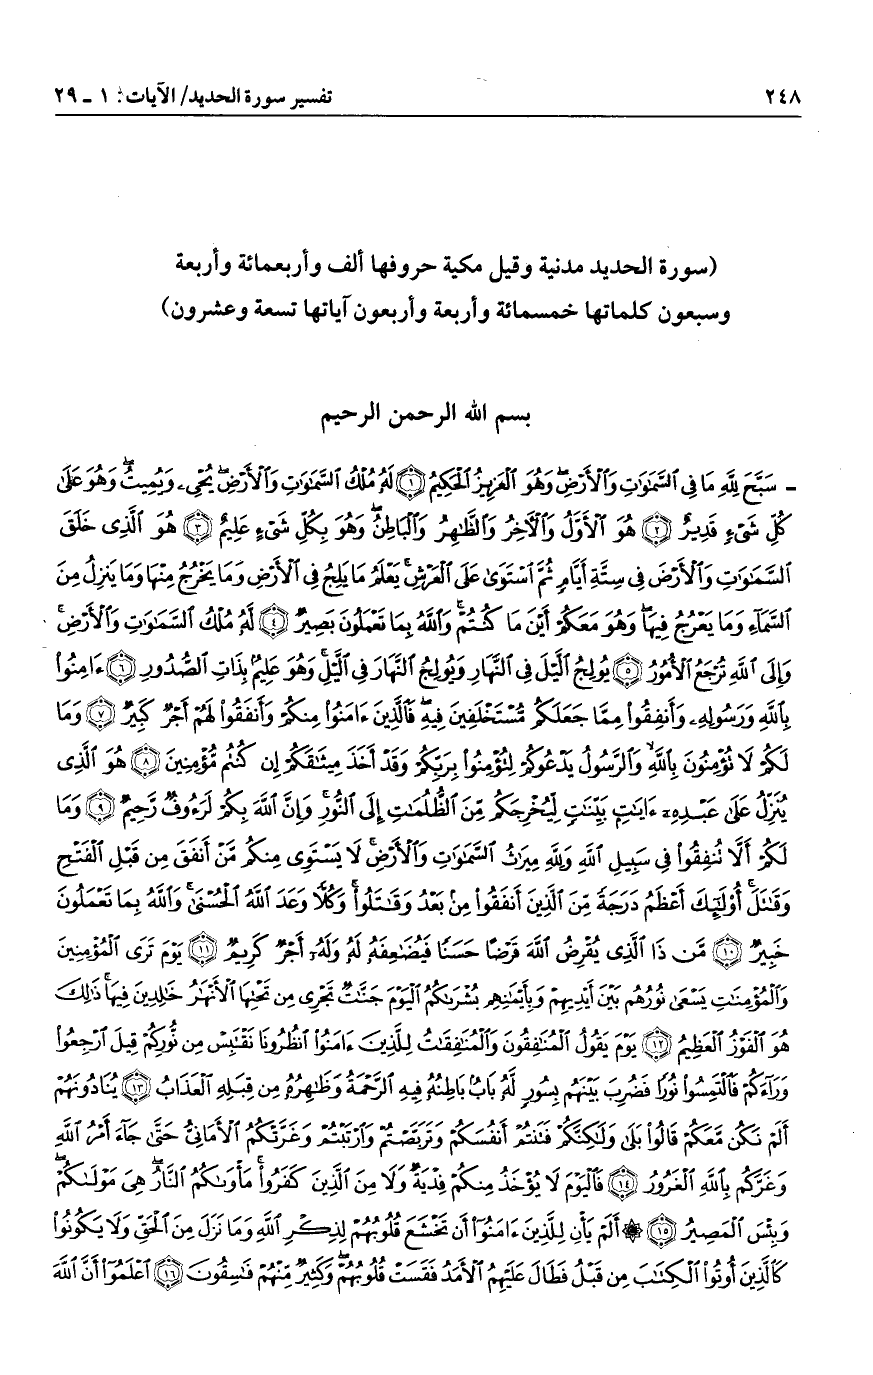 ٢٤٨ تفسير سورة الحديد/ الآيات: ١ ـ ٢٩
(سورة الحديد مدنية وقيل مكية حروفها ألف وأربعمائة وأربعة
وسبعون كلماتها خمسمائة وأربعة وأربعون آياتها تسعة وعشرون)
بسم الله الرحمن الرحيم
- سَبَّحَ لِلَّهِ مَا فِى ٱلسَّمَٰوَٰتِ وَٱلْأَرْضِ ۖ وَهُوَ ٱلْعَزِيزُ ٱلْحَكِيمُ ١ لَهُۥ مُلْكُ ٱلسَّمَٰوَٰتِ وَٱلْأَرْضِ ۖ يُحْىِۦ وَيُمِيتُ ۖ وَهُوَ عَلَىٰ
كُلِّ شَىْءٍ قَدِيرٌ ٢ هُوَ ٱلْأَوَّلُ وَٱلْءَاخِرُ وَٱلظَّٰهِرُ وَٱلْبَاطِنُ ۖ وَهُوَ بِكُلِّ شَىْءٍ عَلِيمٌ ٣ هُوَ ٱلَّذِى خَلَقَ
ٱلسَّمَٰوَٰتِ وَٱلْأَرْضَ فِى سِتَّةِ أَيَّامٍ ثُمَّ ٱسْتَوَىٰ عَلَى ٱلْعَرْشِ ۚ يَعْلَمُ مَا يَلِجُ فِى ٱلْأَرْضِ وَمَا يَخْرُجُ مِنْهَا وَمَا يَنزِلُ مِنَ
ٱلسَّمَآءِ وَمَا يَعْرُجُ فِيهَا ۖ وَهُوَ مَعَكُمْ أَيْنَ مَا كُنتُمْ ۚ وَٱللَّهُ بِمَا تَعْمَلُونَ بَصِيرٌ ٤ لَّهُۥ مُلْكُ ٱلسَّمَٰوَٰتِ وَٱلْأَرْضِ ۚ
وَإِلَى ٱللَّهِ تُرْجَعُ ٱلْأُمُورُ ٥ يُولِجُ ٱلَّيْلَ فِى ٱلنَّهَارِ وَيُولِجُ ٱلنَّهَارَ فِى ٱلَّيْلِ ۚ وَهُوَ عَلِيمٌۢ بِذَاتِ ٱلصُّدُورِ ٦ ءَامِنُوا۟
بِٱللَّهِ وَرَسُولِهِۦ وَأَنفِقُوا۟ مِمَّا جَعَلَكُم مُّسْتَخْلَفِينَ فِيهِ ۖ فَٱلَّذِينَ ءَامَنُوا۟ مِنكُمْ وَأَنفَقُوا۟ لَهُمْ أَجْرٌ كَبِيرٌ ٧ وَمَا
لَكُمْ لَا تُؤْمِنُونَ بِٱللَّهِ ۙ وَٱلرَّسُولُ يَدْعُوكُمْ لِتُؤْمِنُوا۟ بِرَبِّكُمْ وَقَدْ أَخَذَ مِيثَٰقَكُمْ إِن كُنتُم مُّؤْمِنِينَ ٨ هُوَ ٱلَّذِى
يُنَزِّلُ عَلَىٰ عَبْدِهِۦٓ ءَايَٰتٍۭ بَيِّنَٰتٍ لِّيُخْرِجَكُم مِّنَ ٱلظُّلُمَٰتِ إِلَى ٱلنُّورِ ۚ وَإِنَّ ٱللَّهَ بِكُمْ لَرَءُوفٌ رَّحِيمٌ ٩ وَمَا
لَكُمْ أَلَّا تُنفِقُوا۟ فِى سَبِيلِ ٱللَّهِ وَلِلَّهِ مِيرَٰثُ ٱلسَّمَٰوَٰتِ وَٱلْأَرْضِ ۚ لَا يَسْتَوِى مِنكُم مَّنْ أَنفَقَ مِن قَبْلِ ٱلْفَتْحِ
وَقَٰتَلَ ۚ أُو۟لَٰٓئِكَ أَعْظَمُ دَرَجَةً مِّنَ ٱلَّذِينَ أَنفَقُوا۟ مِنۢ بَعْدُ وَقَٰتَلُوا۟ ۚ وَكُلًّا وَعَدَ ٱللَّهُ ٱلْحُسْنَىٰ ۚ وَٱللَّهُ بِمَا تَعْمَلُونَ
خَبِيرٌ ١٠ مَّن ذَا ٱلَّذِى يُقْرِضُ ٱللَّهَ قَرْضًا حَسَنًا فَيُضَٰعِفَهُۥ لَهُۥ وَلَهُۥٓ أَجْرٌ كَرِيمٌ ١١ يَوْمَ تَرَى ٱلْمُؤْمِنِينَ
وَٱلْمُؤْمِنَٰتِ يَسْعَىٰ نُورُهُم بَيْنَ أَيْدِيهِمْ وَبِأَيْمَٰنِهِم بُشْرَىٰكُمُ ٱلْيَوْمَ جَنَّٰتٌ تَجْرِى مِن تَحْتِهَا ٱلْأَنْهَٰرُ خَٰلِدِينَ فِيهَا ۚ ذَٰلِكَ
هُوَ ٱلْفَوْزُ ٱلْعَظِيمُ ١٢ يَوْمَ يَقُولُ ٱلْمُنَٰفِقُونَ وَٱلْمُنَٰفِقَٰتُ لِلَّذِينَ ءَامَنُوا۟ ٱنظُرُونَا نَقْتَبِسْ مِن نُّورِكُمْ قِيلَ ٱرْجِعُوا۟
وَرَآءَكُمْ فَٱلْتَمِسُوا۟ نُورًا فَضُرِبَ بَيْنَهُم بِسُورٍ لَّهُۥ بَابٌۢ بَاطِنُهُۥ فِيهِ ٱلرَّحْمَةُ وَظَٰهِرُهُۥ مِن قِبَلِهِ ٱلْعَذَابُ ١٣ يُنَادُونَهُمْ
أَلَمْ نَكُن مَّعَكُمْ قَالُوا۟ بَلَىٰ وَلَٰكِنَّكُمْ فَتَنتُمْ أَنفُسَكُمْ وَتَرَبَّصْتُمْ وَٱرْتَبْتُمْ وَغَرَّتْكُمُ ٱلْأَمَانِىُّ حَتَّىٰ جَآءَ أَمْرُ ٱللَّهِ
وَغَرَّكُم بِٱللَّهِ ٱلْغَرُورُ ١٤ فَٱلْيَوْمَ لَا يُؤْخَذُ مِنكُمْ فِدْيَةٌ وَلَا مِنَ ٱلَّذِينَ كَفَرُوا۟ ۚ مَأْوَىٰكُمُ ٱلنَّارُ ۖ هِىَ مَوْلَىٰكُمْ ۖ
وَبِئْسَ ٱلْمَصِيرُ ١٥ ۞ أَلَمْ يَأْنِ لِلَّذِينَ ءَامَنُوٓا۟ أَن تَخْشَعَ قُلُوبُهُمْ لِذِكْرِ ٱللَّهِ وَمَا نَزَلَ مِنَ ٱلْحَقِّ وَلَا يَكُونُوا۟
كَٱلَّذِينَ أُوتُوا۟ ٱلْكِتَٰبَ مِن قَبْلُ فَطَالَ عَلَيْهِمُ ٱلْأَمَدُ فَقَسَتْ قُلُوبُهُمْ ۖ وَكَثِيرٌ مِّنْهُمْ فَٰسِقُونَ ١٦ ٱعْلَمُوٓا۟ أَنَّ ٱللَّهَ